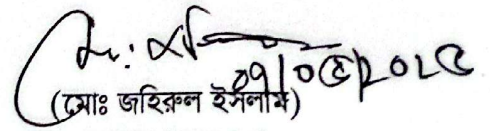 ০৭/০৫/২০২৫
(মোঃ জহিরুল ইসলাম)